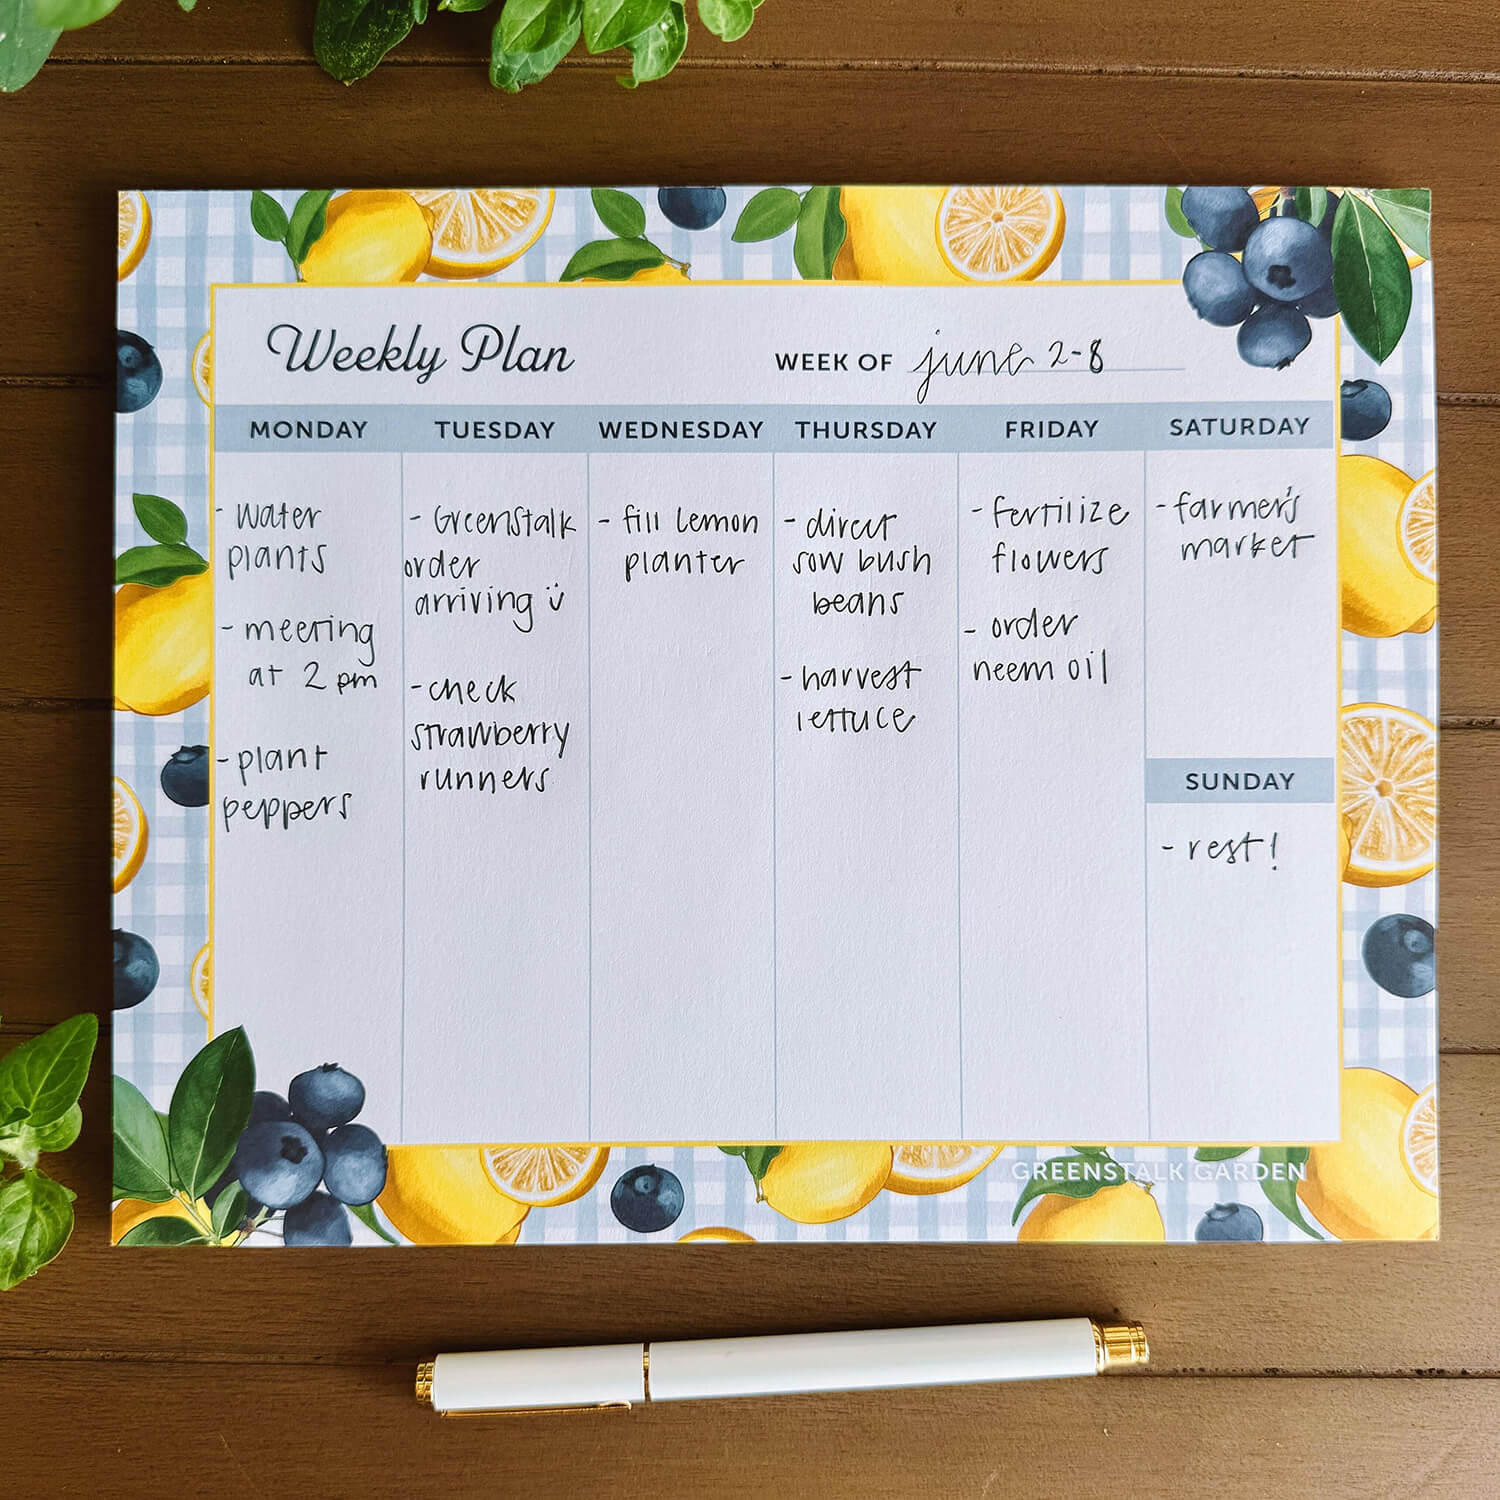 Weekly Plan
WEEK OF june 2-8
MONDAY
- water
plants
- meeting
at 2 pm
- plant
peppers
TUESDAY
- Greenstalk
order
arriving :)
- check
strawberry
runners
WEDNESDAY
- fill lemon
planter
THURSDAY
- direct
sow bush
beans
- harvest
lettuce
FRIDAY
- fertilize
flowers
- order
neem oil
SATURDAY
- farmer's
market
SUNDAY
- rest!
GREENSTALK GARDEN